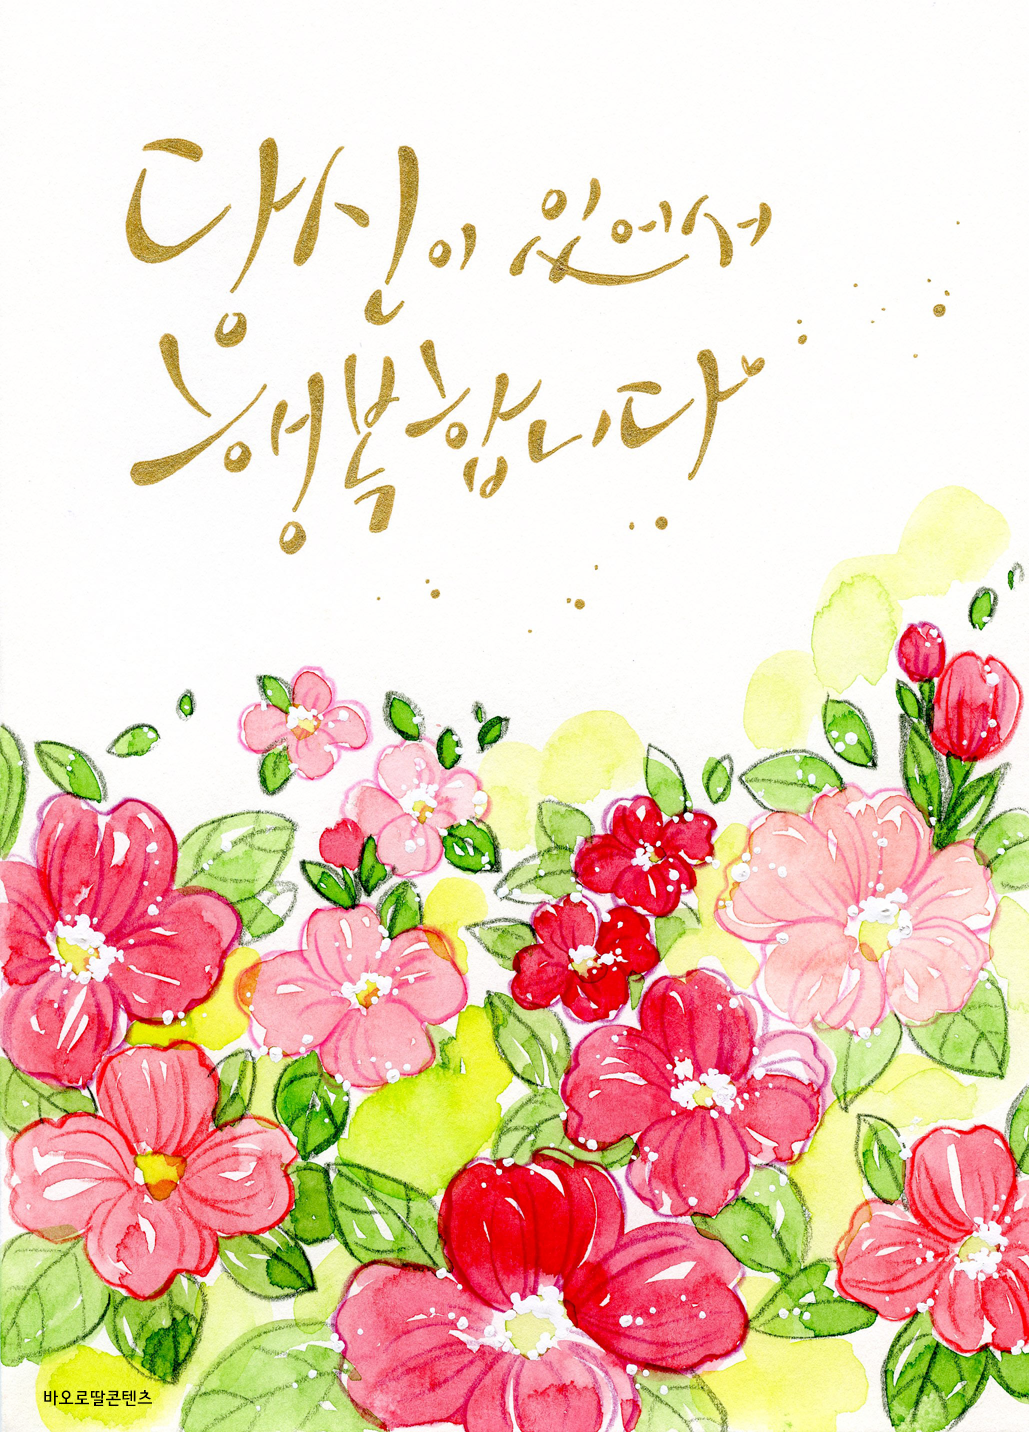 당신이 있에서
행복합니다
바오로딸콘텐츠